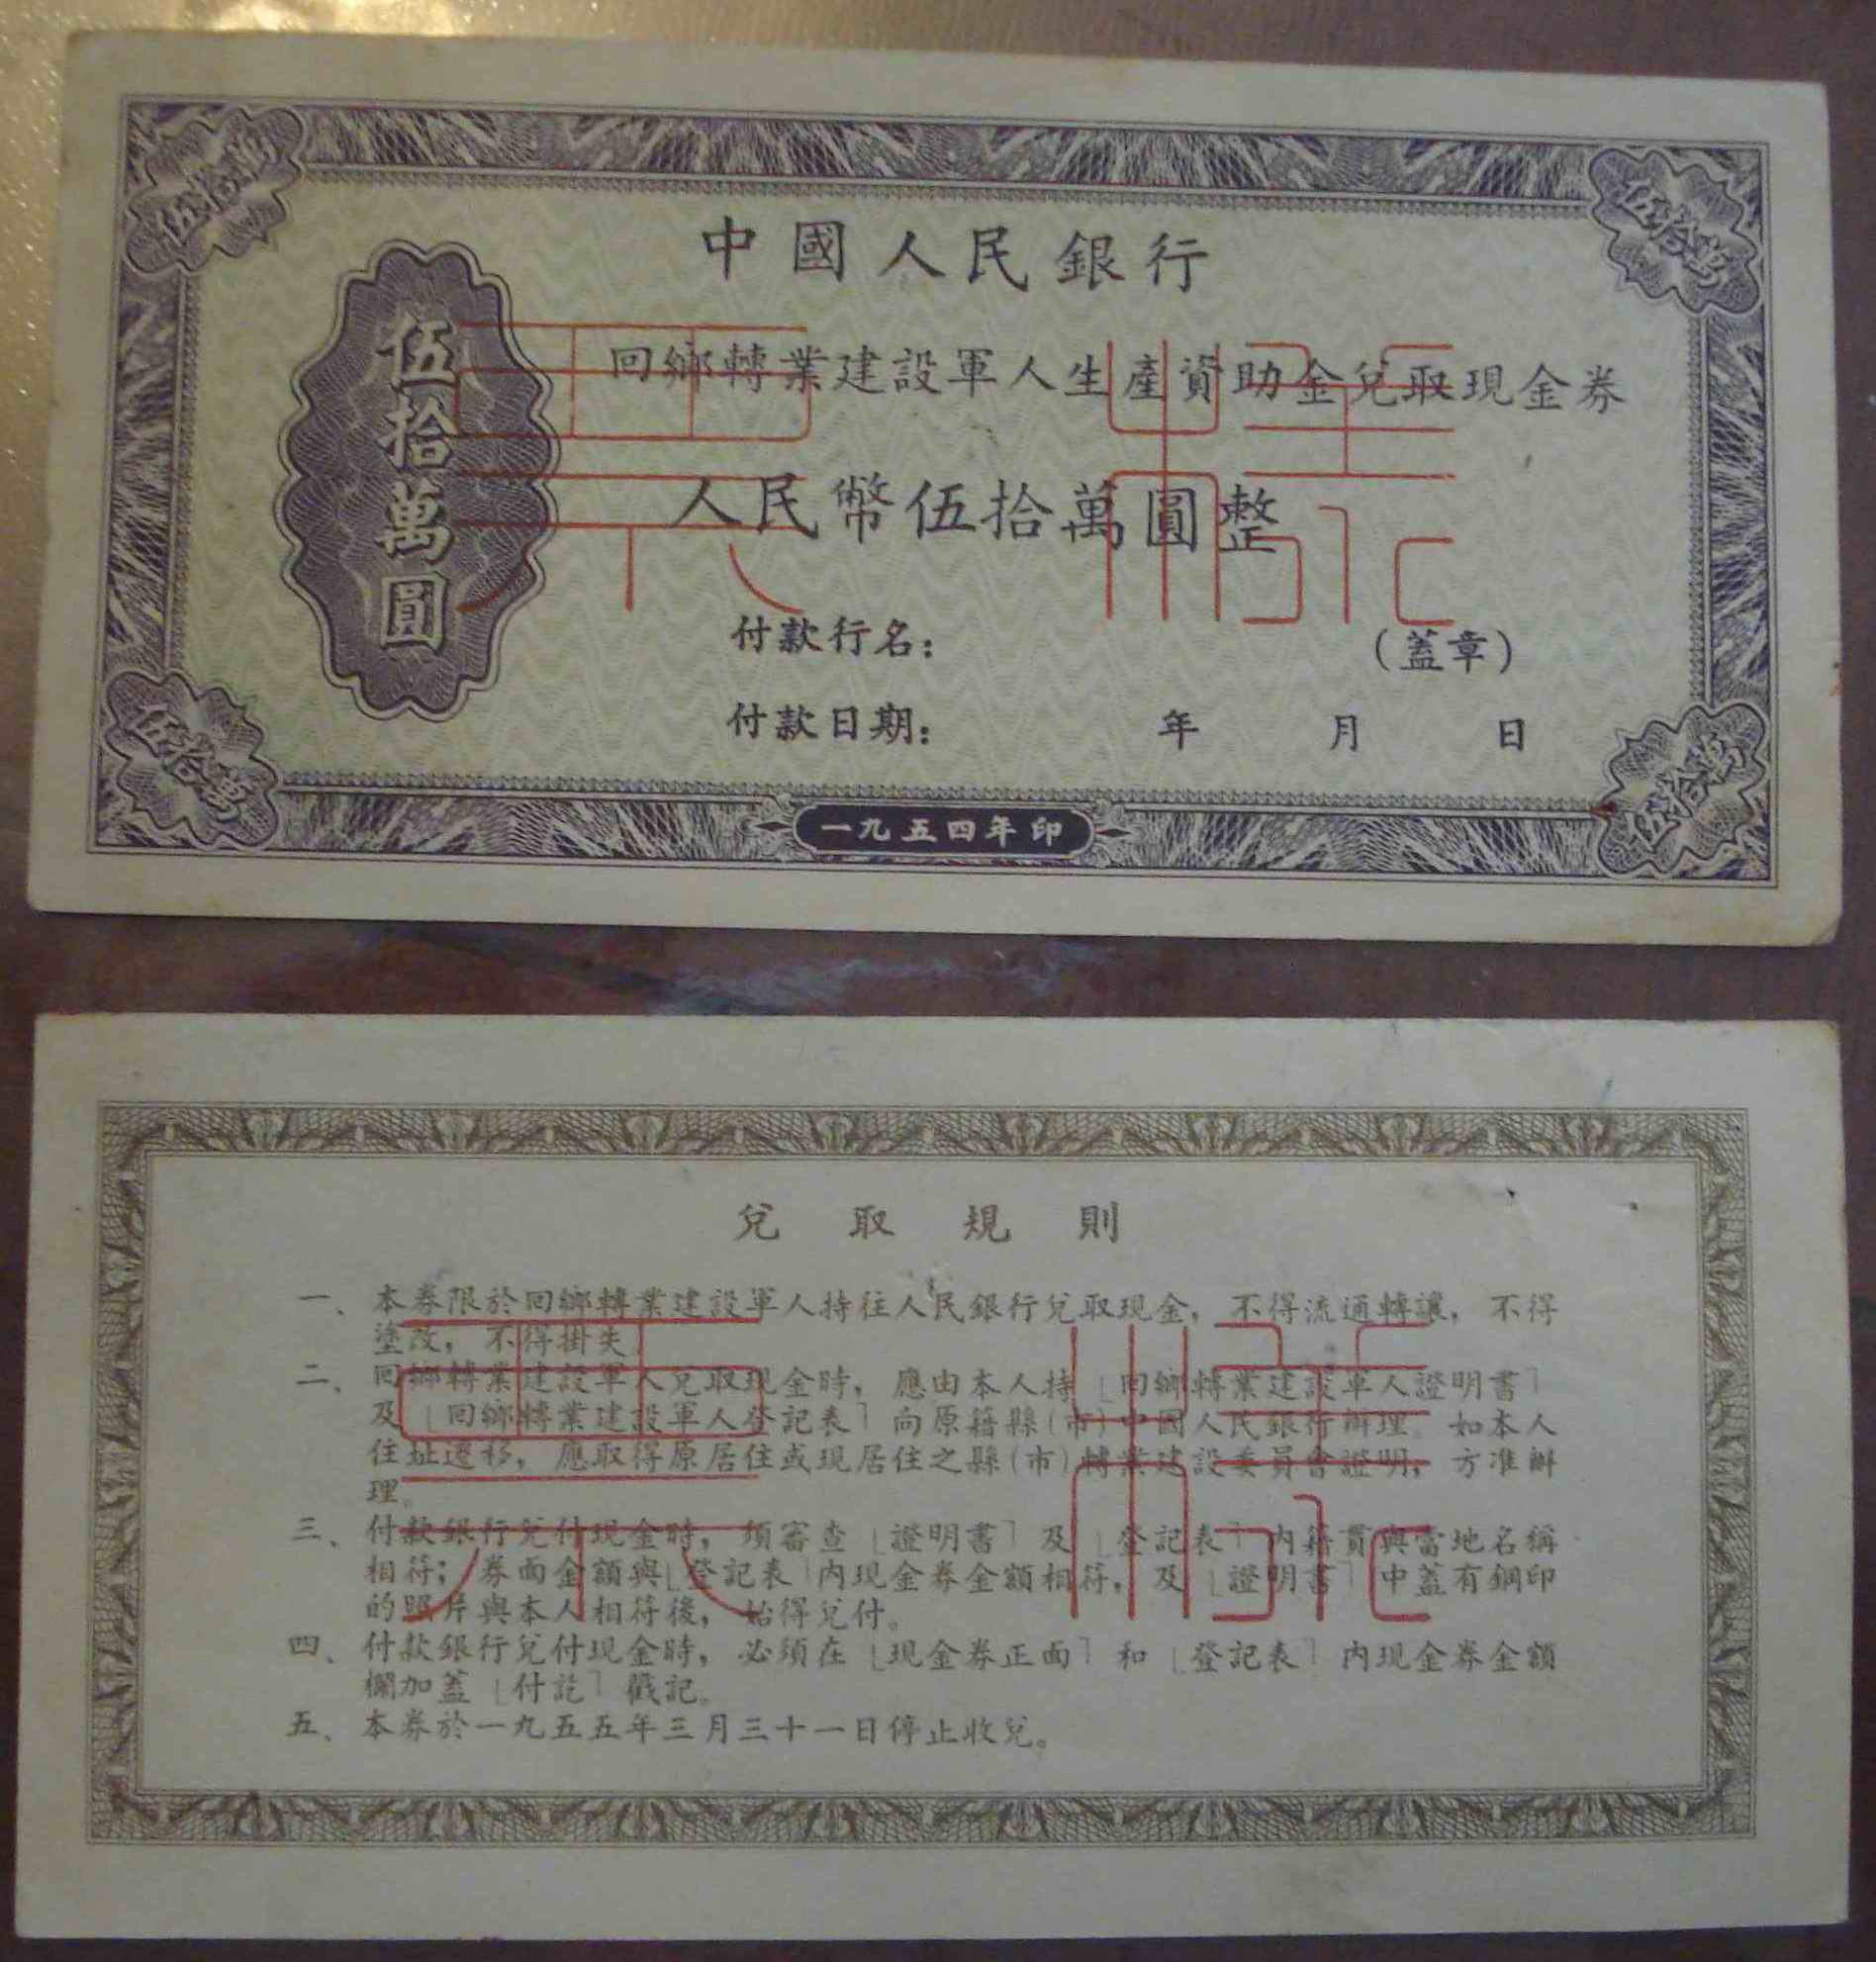 伍拾萬
伍拾萬
中國人民銀行
伍拾萬圓
回鄉轉業建設軍人生產資助金兌取現金券
人民幣伍拾萬圓整
付款行名：
（蓋章）
付款日期：　年　月　日
伍拾萬
伍拾萬
一九五四年印
票樣
兌取規則
一、本券限於回鄉轉業建設軍人持往人民銀行兌取現金，不得流通轉讓，不得
塗改，不得掛失。
二、回鄉轉業建設軍人兌取現金時，應由本人持「回鄉轉業建設軍人證明書」
及「回鄉轉業建設軍人登記表」向原籍縣（市）中國人民銀行辦理。如本人
住址遷移，應取得原居住或現居住之縣（市）轉業建設委員會證明，方准辦
理。
三、付款銀行兌付現金時，須審查「證明書」及「登記表」內籍貫與當地名稱
相符；券面金額與「登記表」內現金券金額相符，及「證明書」中蓋有鋼印
的照片與本人相符後，始得兌付。
四、付款銀行兌付現金時，必須在「現金券正面」和「登記表」內現金券金額
欄加蓋「付訖」戳記。
五、本券於一九五五年三月三十一日停止收兌。
票樣